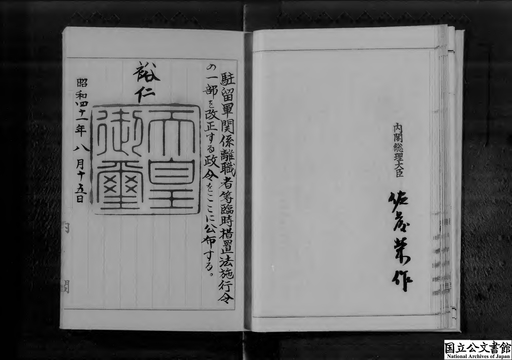 内閣総理大臣 佐藤栄作
駐留軍関係離職者等臨時措置法施行令
の一部を改正する政令をここに公布する。
裕仁
天皇御璽
昭和四十一年八月十五日
国立公文書館
National Archives of Japan